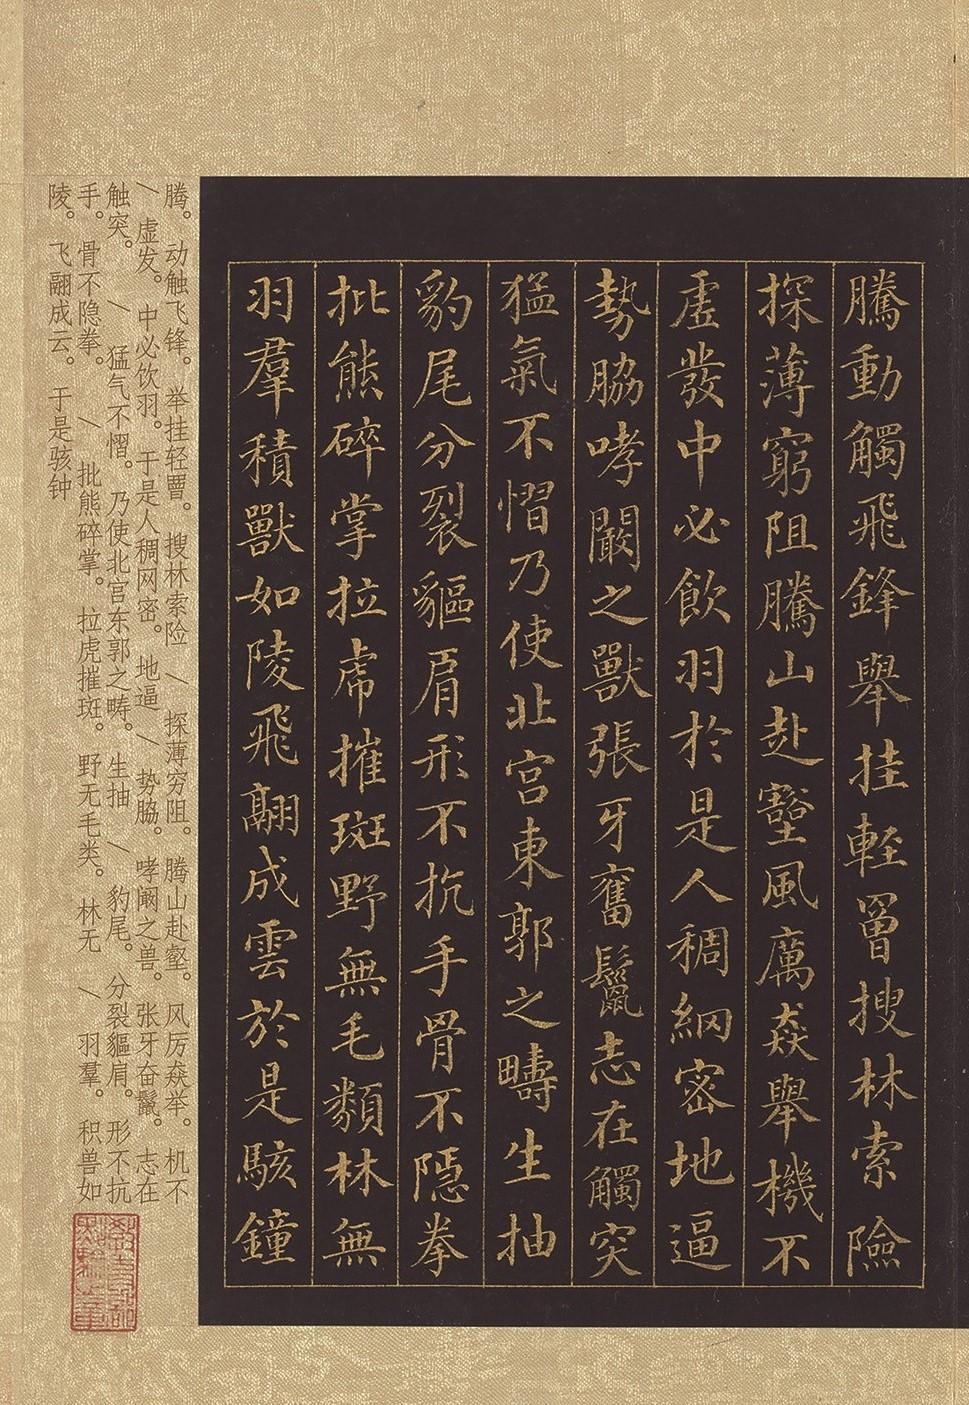 騰動觸飛鋒舉挂輕罾搜林索險
探薄窮阻騰山赴壑風厲猋舉機不
虛發中必飲羽於是人稠網密地逼
勢脇哮闞之獸張牙奮鬣志在觸突
猛氣不慴乃使北宮東郭之疇生抽
豹尾分裂貙肩形不抗手骨不隱拳
批熊碎掌拉虎摧斑野無毛類林無
羽羣積獸如陵飛翮成雲於是駭鐘
腾。动触飞锋。举挂轻罾。搜林索险 / 探薄穷阻。腾山赴壑。风厉猋举。机不
/ 虚发。中必饮羽。于是人稠网密。地逼 / 势脇。哮阚之兽。张牙奋鬣。志在
触突。 / 猛气不慴。乃使北宫东郭之畴。生抽 / 豹尾。分裂貙肩。形不抗
手。骨不隐拳。 / 批熊碎掌。拉虎摧斑。野无毛类。林无 / 羽羣。积兽如
陵。飞翮成云。于是骇钟